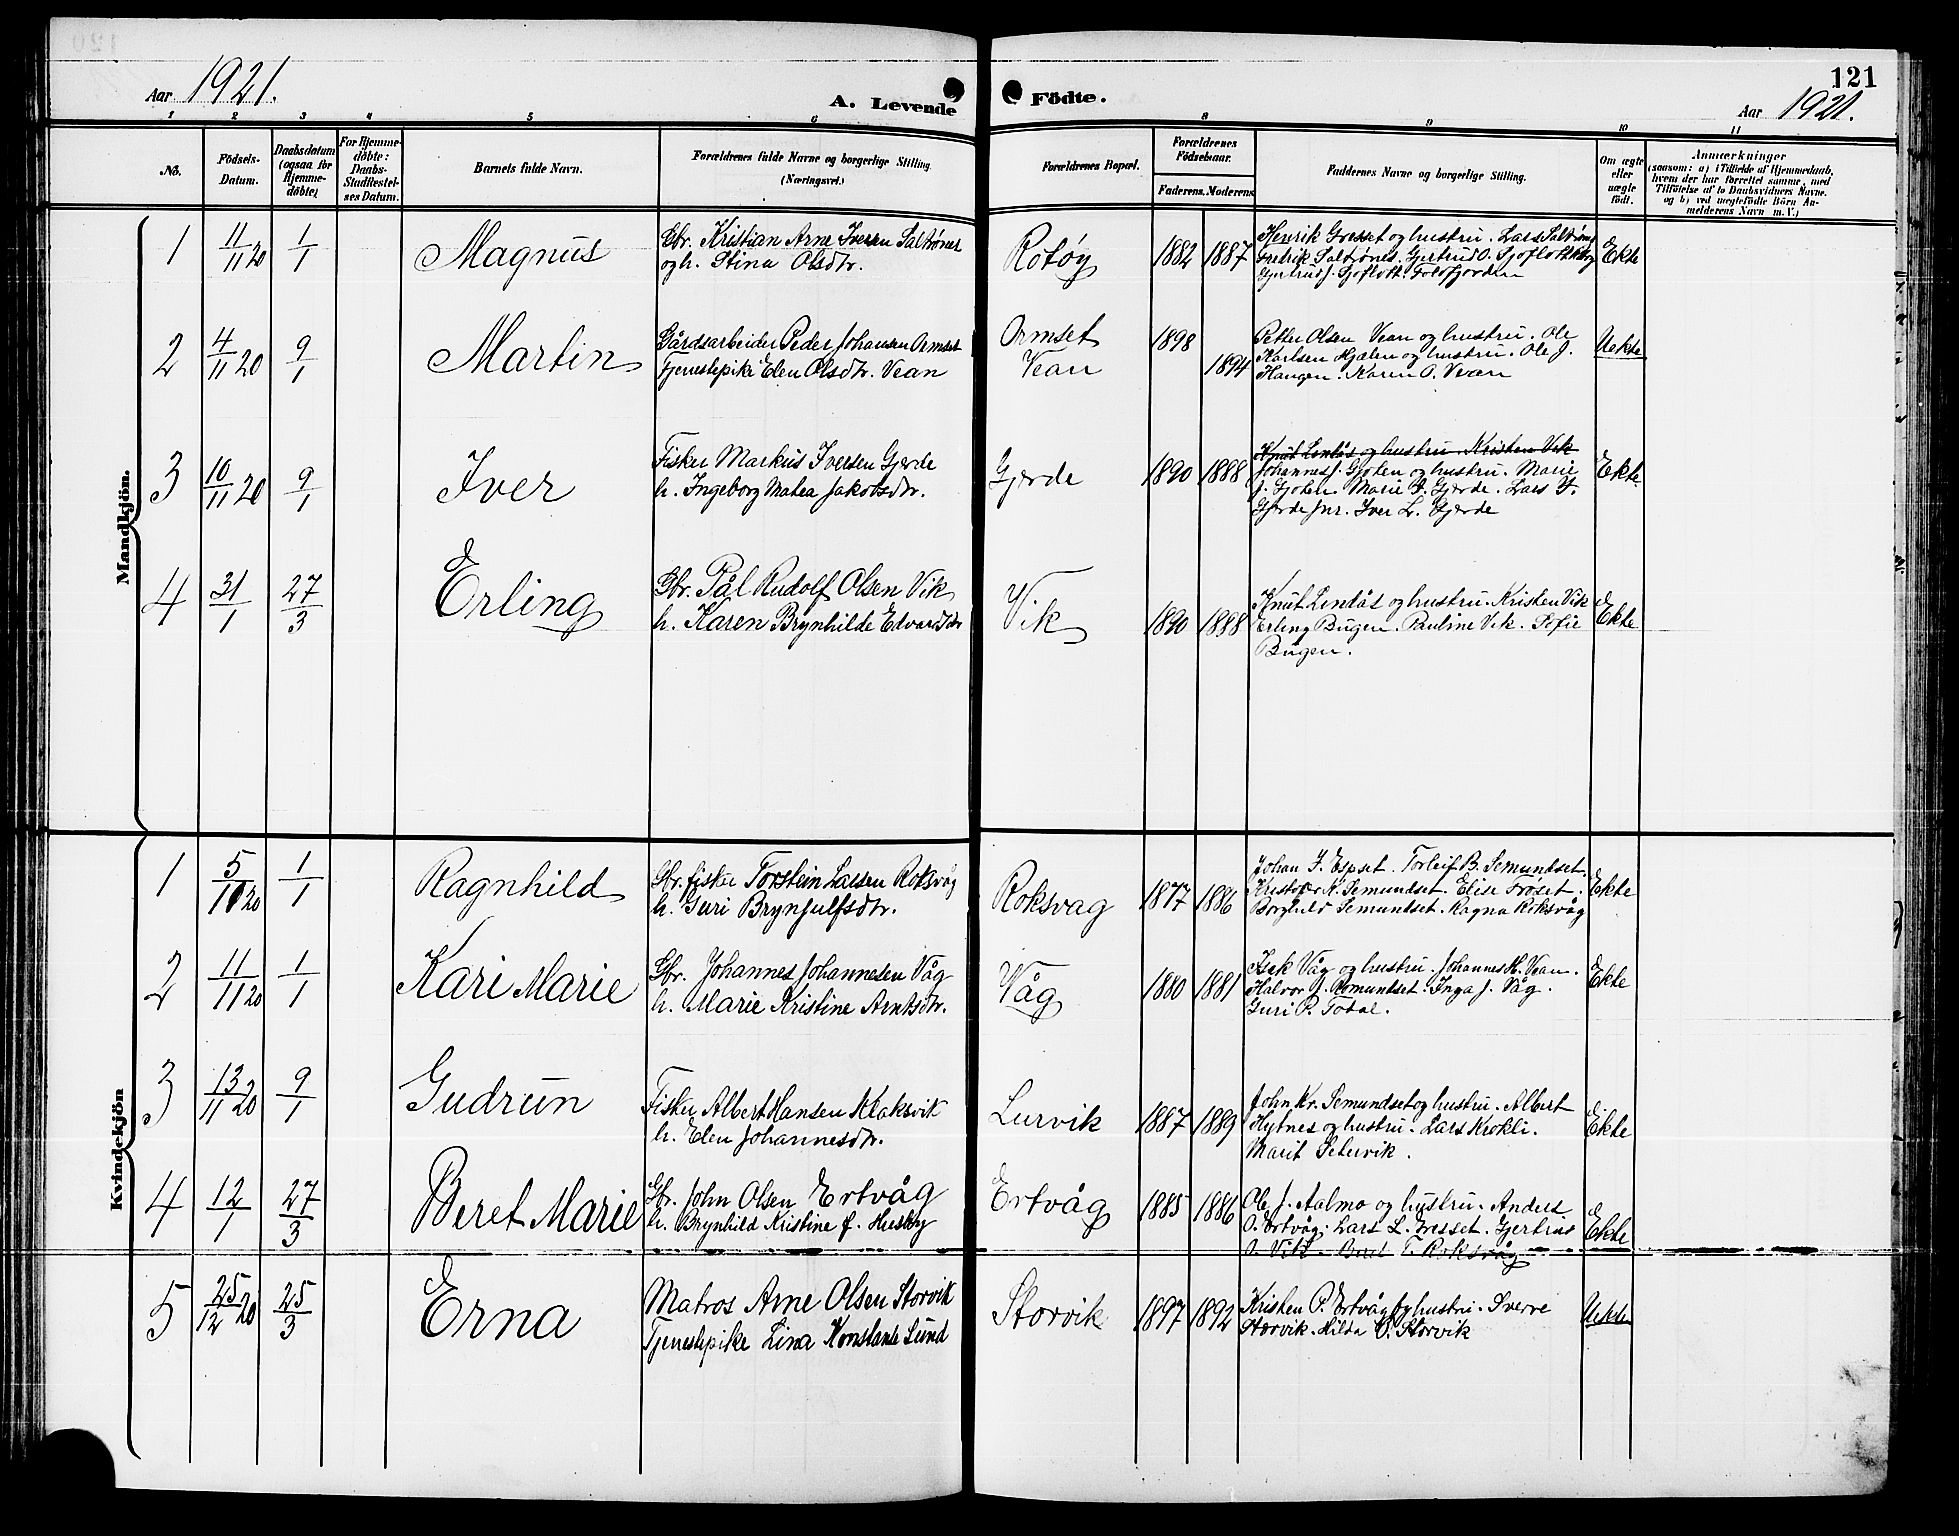 121
Aar 1921. A. Levende Födte. Aar 1921.
1 2 3 4 5 6 8 9 10 11
No.
Födsels-Datum.
Daabsdatum (ogsaa for Hjemmedöbte)
For Hjemmedöbte: Daabs-Stadfæstelses Datum.
Barnets fulde Navn.
Forældrenes fulde Navne og borgerlige Stilling
(Næringsvei.)
Forældrenes Bopæl.
Forældrenes Födselsaar.
Faderens. Moderens.
Faddernes Navne og borgerlige Stilling.
Om ægte eller uægte födt.
Anmærkninger
(saasom: a) i Tilfælde af Hjemmedaab,
hvem der har forrettet samme, med
Tilföielse af to Daabsvidners Navne.
og b) ved uægtefödte Börn Anmelderens Navn m. V.)
Mandkjön.
1 11/11 20 1/1 Magnus
Gbr. Kristian Arne Iversen Saltrönes
og h. Stina Olsdtr.
Rotöy 1882 1887
Henrik Gresset og hustru. Lars
Fredrik Saltrönes. Gjertrud O. Sjöflott
Gjertrud J. Sjöflott.
Ekte
2 4/11 20 9/1 Martin
Gårdsarbeider Peder Johansen Ormset
Tjenestepike Elen Olsdtr. Vean
Ormset
Vean
1898
1894
Petter Olsen Vean og hustru. Ole
Karlsen Hjælen og hustru. Ole J.
Haugen. Karen O. Vean
Uekte
3 10/11 20 9/1 Iver
Fisker Markus Iversen Gjerde
h. Ingeborg Matea Jakobsdtr.
Gjerde 1890 1888
Knut Lenlås og hustru. Kristen Vik
Johannes J. Gjöten og hustru. Marie
J. Gjöten. Marie I. Gjerde. Lars I.
Gjerde jnr. Iver L. Gjerde
Ekte
4 31/1 27/3 Erling
Gbr. Pål Rudolf Olsen Vik
h. Karen Brynhilde Edvardsdtr
Vik 1890 1888
Knut Lenlås og hustru. Kristen Vik
Erling Bugen. Pauline Vik. Sofie
Bugen.
Ekte
Kvindekjön
1 5/10 20 1/1 Ragnhild
Gbr. fisker Torstein Larsen Roksvåg
h. Guri Brynjulfsdtr.
Roksvag 1877 1886
Johan J. Espset. Torleif B. Semundset.
Kristofer K. Semundset. Elise Froset.
Borghild Semundset. Ragna Roksvåg
Ekte
2 11/11 20 1/1 Kari Marie
Gbr. Johannes Johannesen Våg
h. Marie Kristine Arntsdtr.
Våg 1880 1881
Isak Våg og hustru. Johannes H. Vean.
Halvor J. Romundset. Inga J. Våg.
Guri P. Todal.
Ekte
3 13/11 20 9/1 Gudrun
Fisker Albert Hansen Klaksvik
h. Elen Johannesdtr.
Lurvik 1887 1889
John Kr. Semundset og hustru. Albert
Hytnes og hustru. Lars Krokli.
Marit Setervik.
Ekte
4 12/1 27/3 Beret Marie
Gbr. John Olsen Ertvåg
h. Brynhild Kristine f. Husby
Ertvåg 1885 1886
Ole J. Aalmo og hustru. Anders
O. Ertvåg. Lars L. Gresset. Gjertrud
O. Vik. Beret T. Roksvåg
Ekte
5 25/12 20 25/3 Erna
Matros Arne Olsen Storvik
Tjenestepike Lina Konstanse Lund
Storvik 1897 1892
Kristen P. Ertvåg og hustru. Sverre
Storvik. Hilda O. Storvik
Uekte